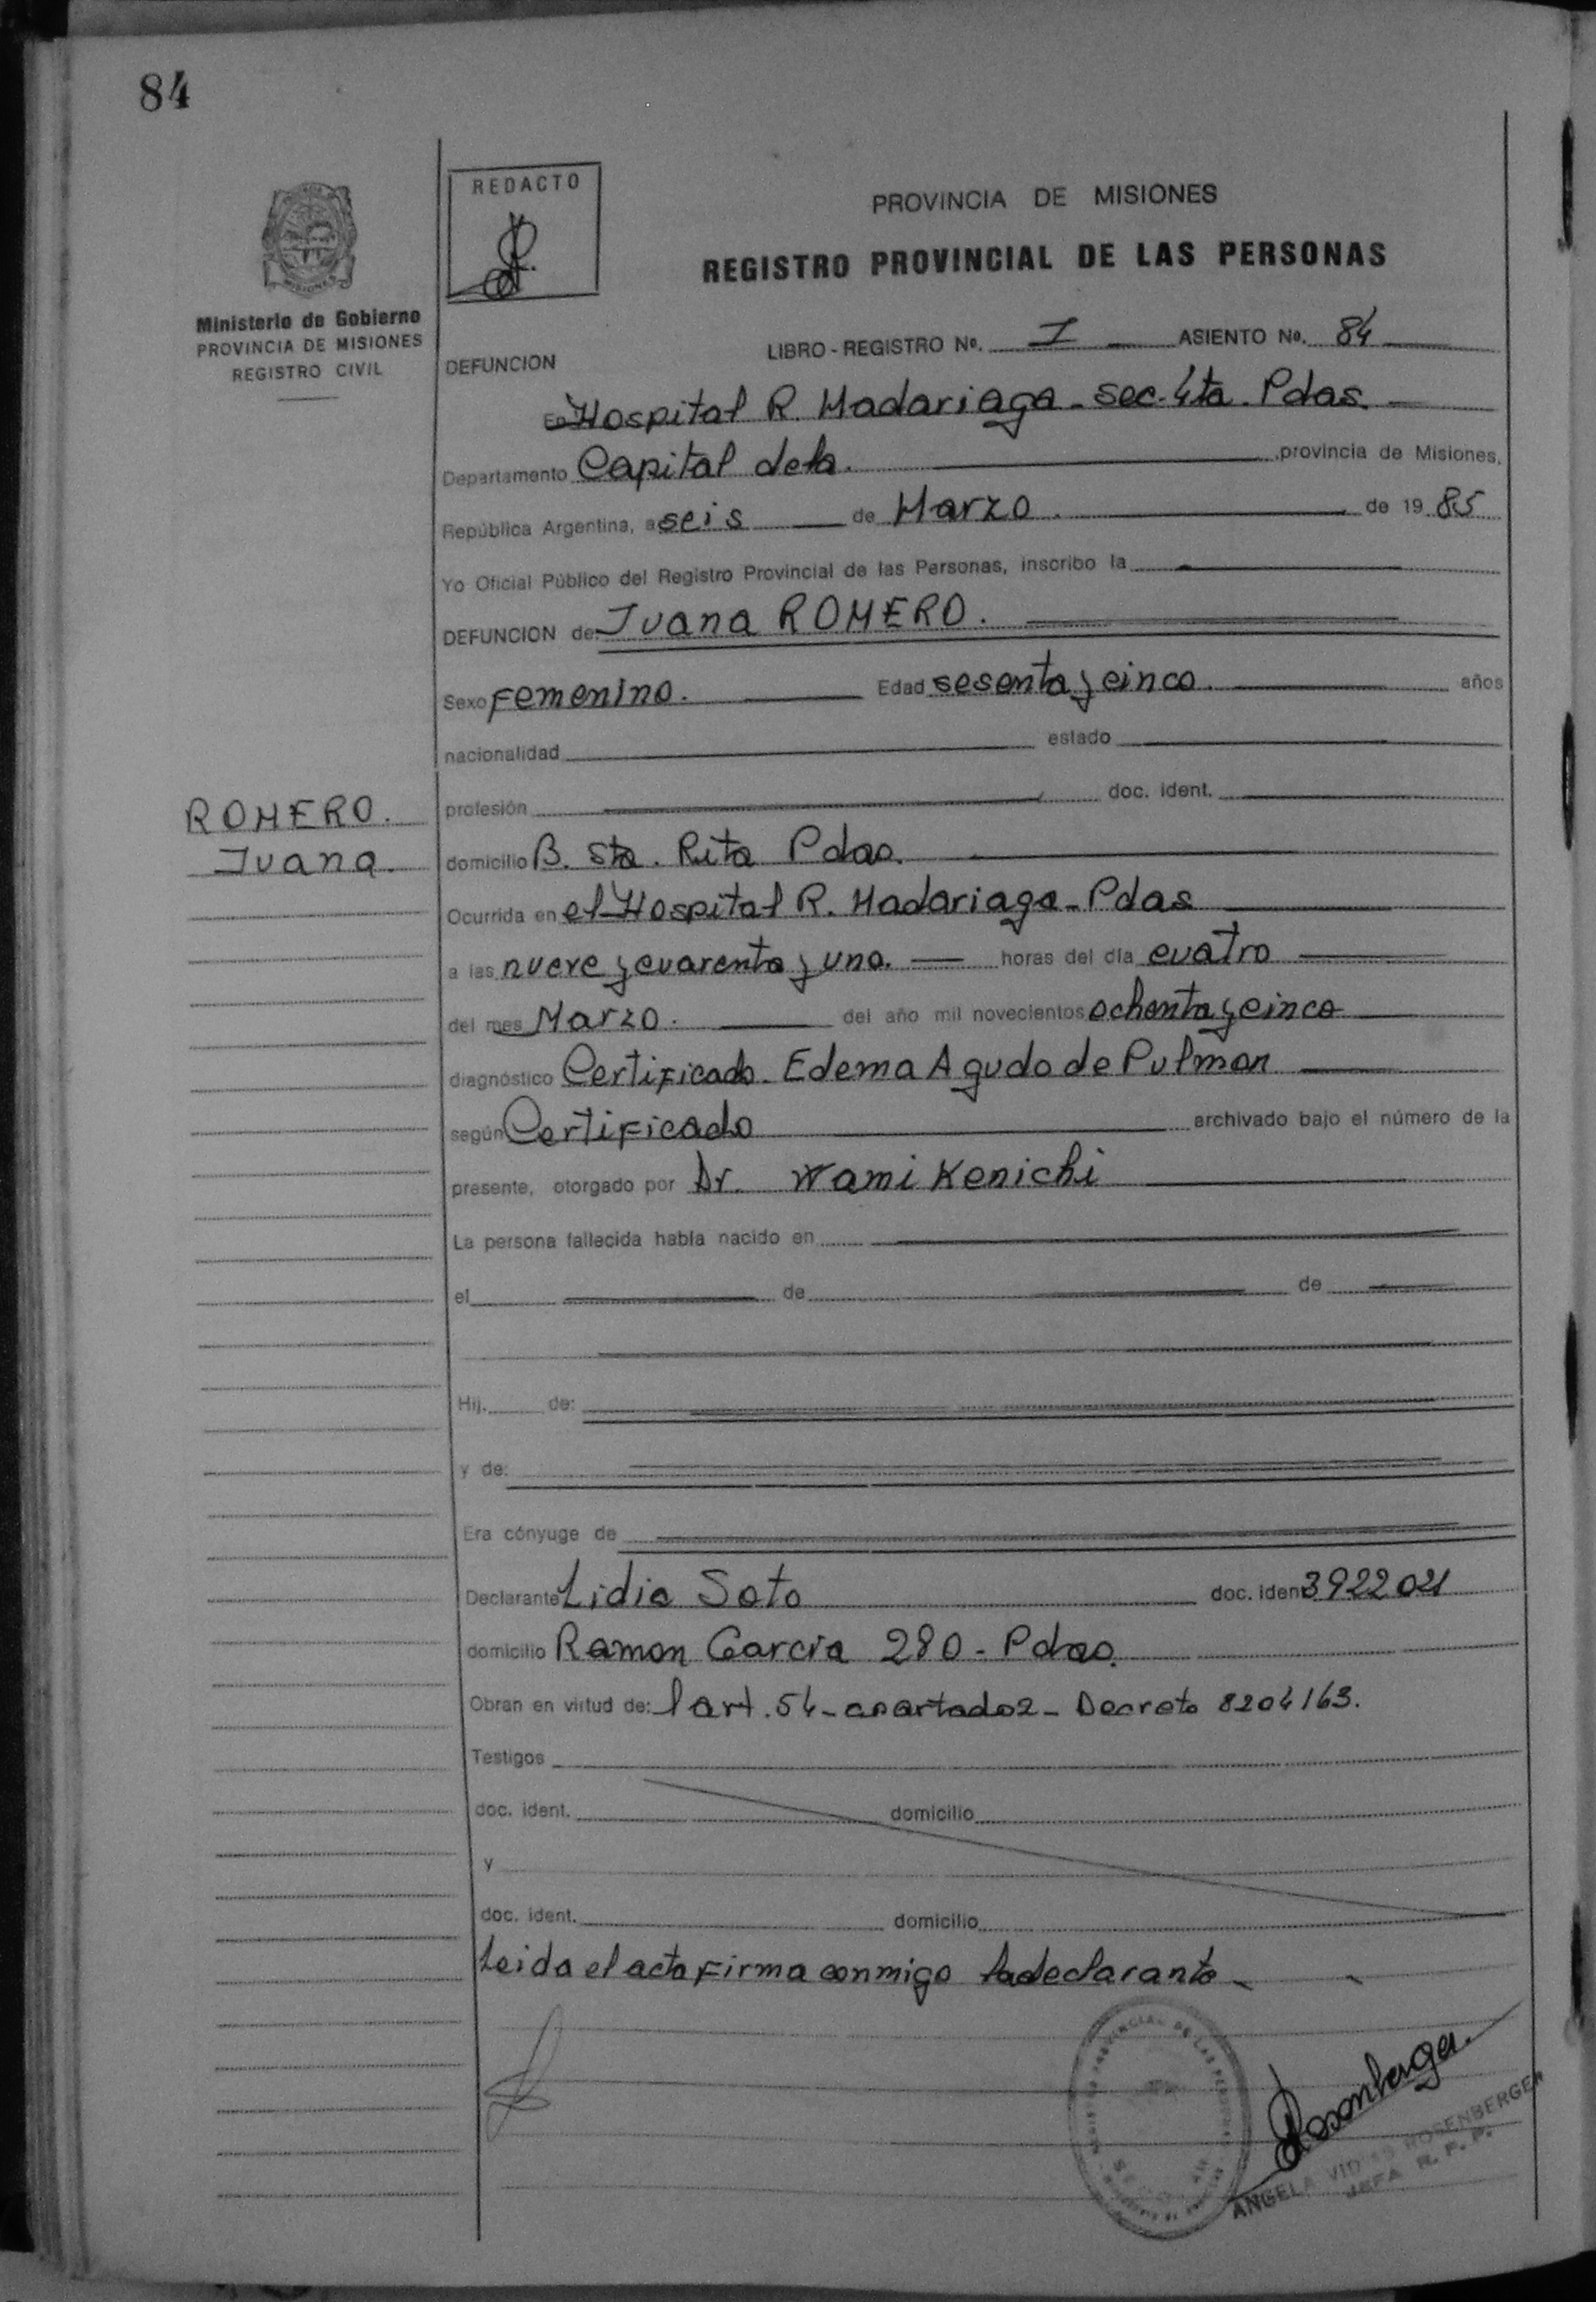 84
REDACTO
PROVINCIA DE MISIONES
REGISTRO PROVINCIAL DE LAS PERSONAS
Ministerio de Gobierno
PROVINCIA DE MISIONES
REGISTRO CIVIL
LIBRO - REGISTRO No. I ASIENTO No. 84
DEFUNCION
En Hospital R. Madariaga - sec. 4ta. Pdas.
Departamento Capital dela. provincia de Misiones,
República Argentina, a seis de Marzo. de 19 85
Yo Oficial Público del Registro Provincial de las Personas, inscribo la
DEFUNCION de Juana ROMERO.
Sexo Femenino. Edad sesenta y cinco. años
nacionalidad estado
profesión doc. ident.
ROMERO.
Juana.
domicilio B. Sta. Rita Pdas.
Ocurrida en el Hospital R. Madariaga - Pdas
a las nueve y cuarenta y uno. horas del día cuatro
del mes Marzo. del año mil novecientos ochenta y cinco
diagnóstico Certificado. Edema Agudo de Pulmon
según Certificado archivado bajo el número de la
presente, otorgado por Dr. Wami Kenichi
La persona fallecida había nacido en
el de de
Hij. de:
y de:
Era cónyuge de
Declarante Lidia Soto doc. ident 3922021
domicilio Ramon Garcia 280 - Pdas.
Obran en virtud de: l art. 54 - apartado 2 - Decreto 8204/63.
Testigos
doc. ident. domicilio
y
doc. ident. domicilio
Leida el acta firma conmigo la declarante
Rosenberger
ANGELA ROSENBERGER
JEFA R. P. P.